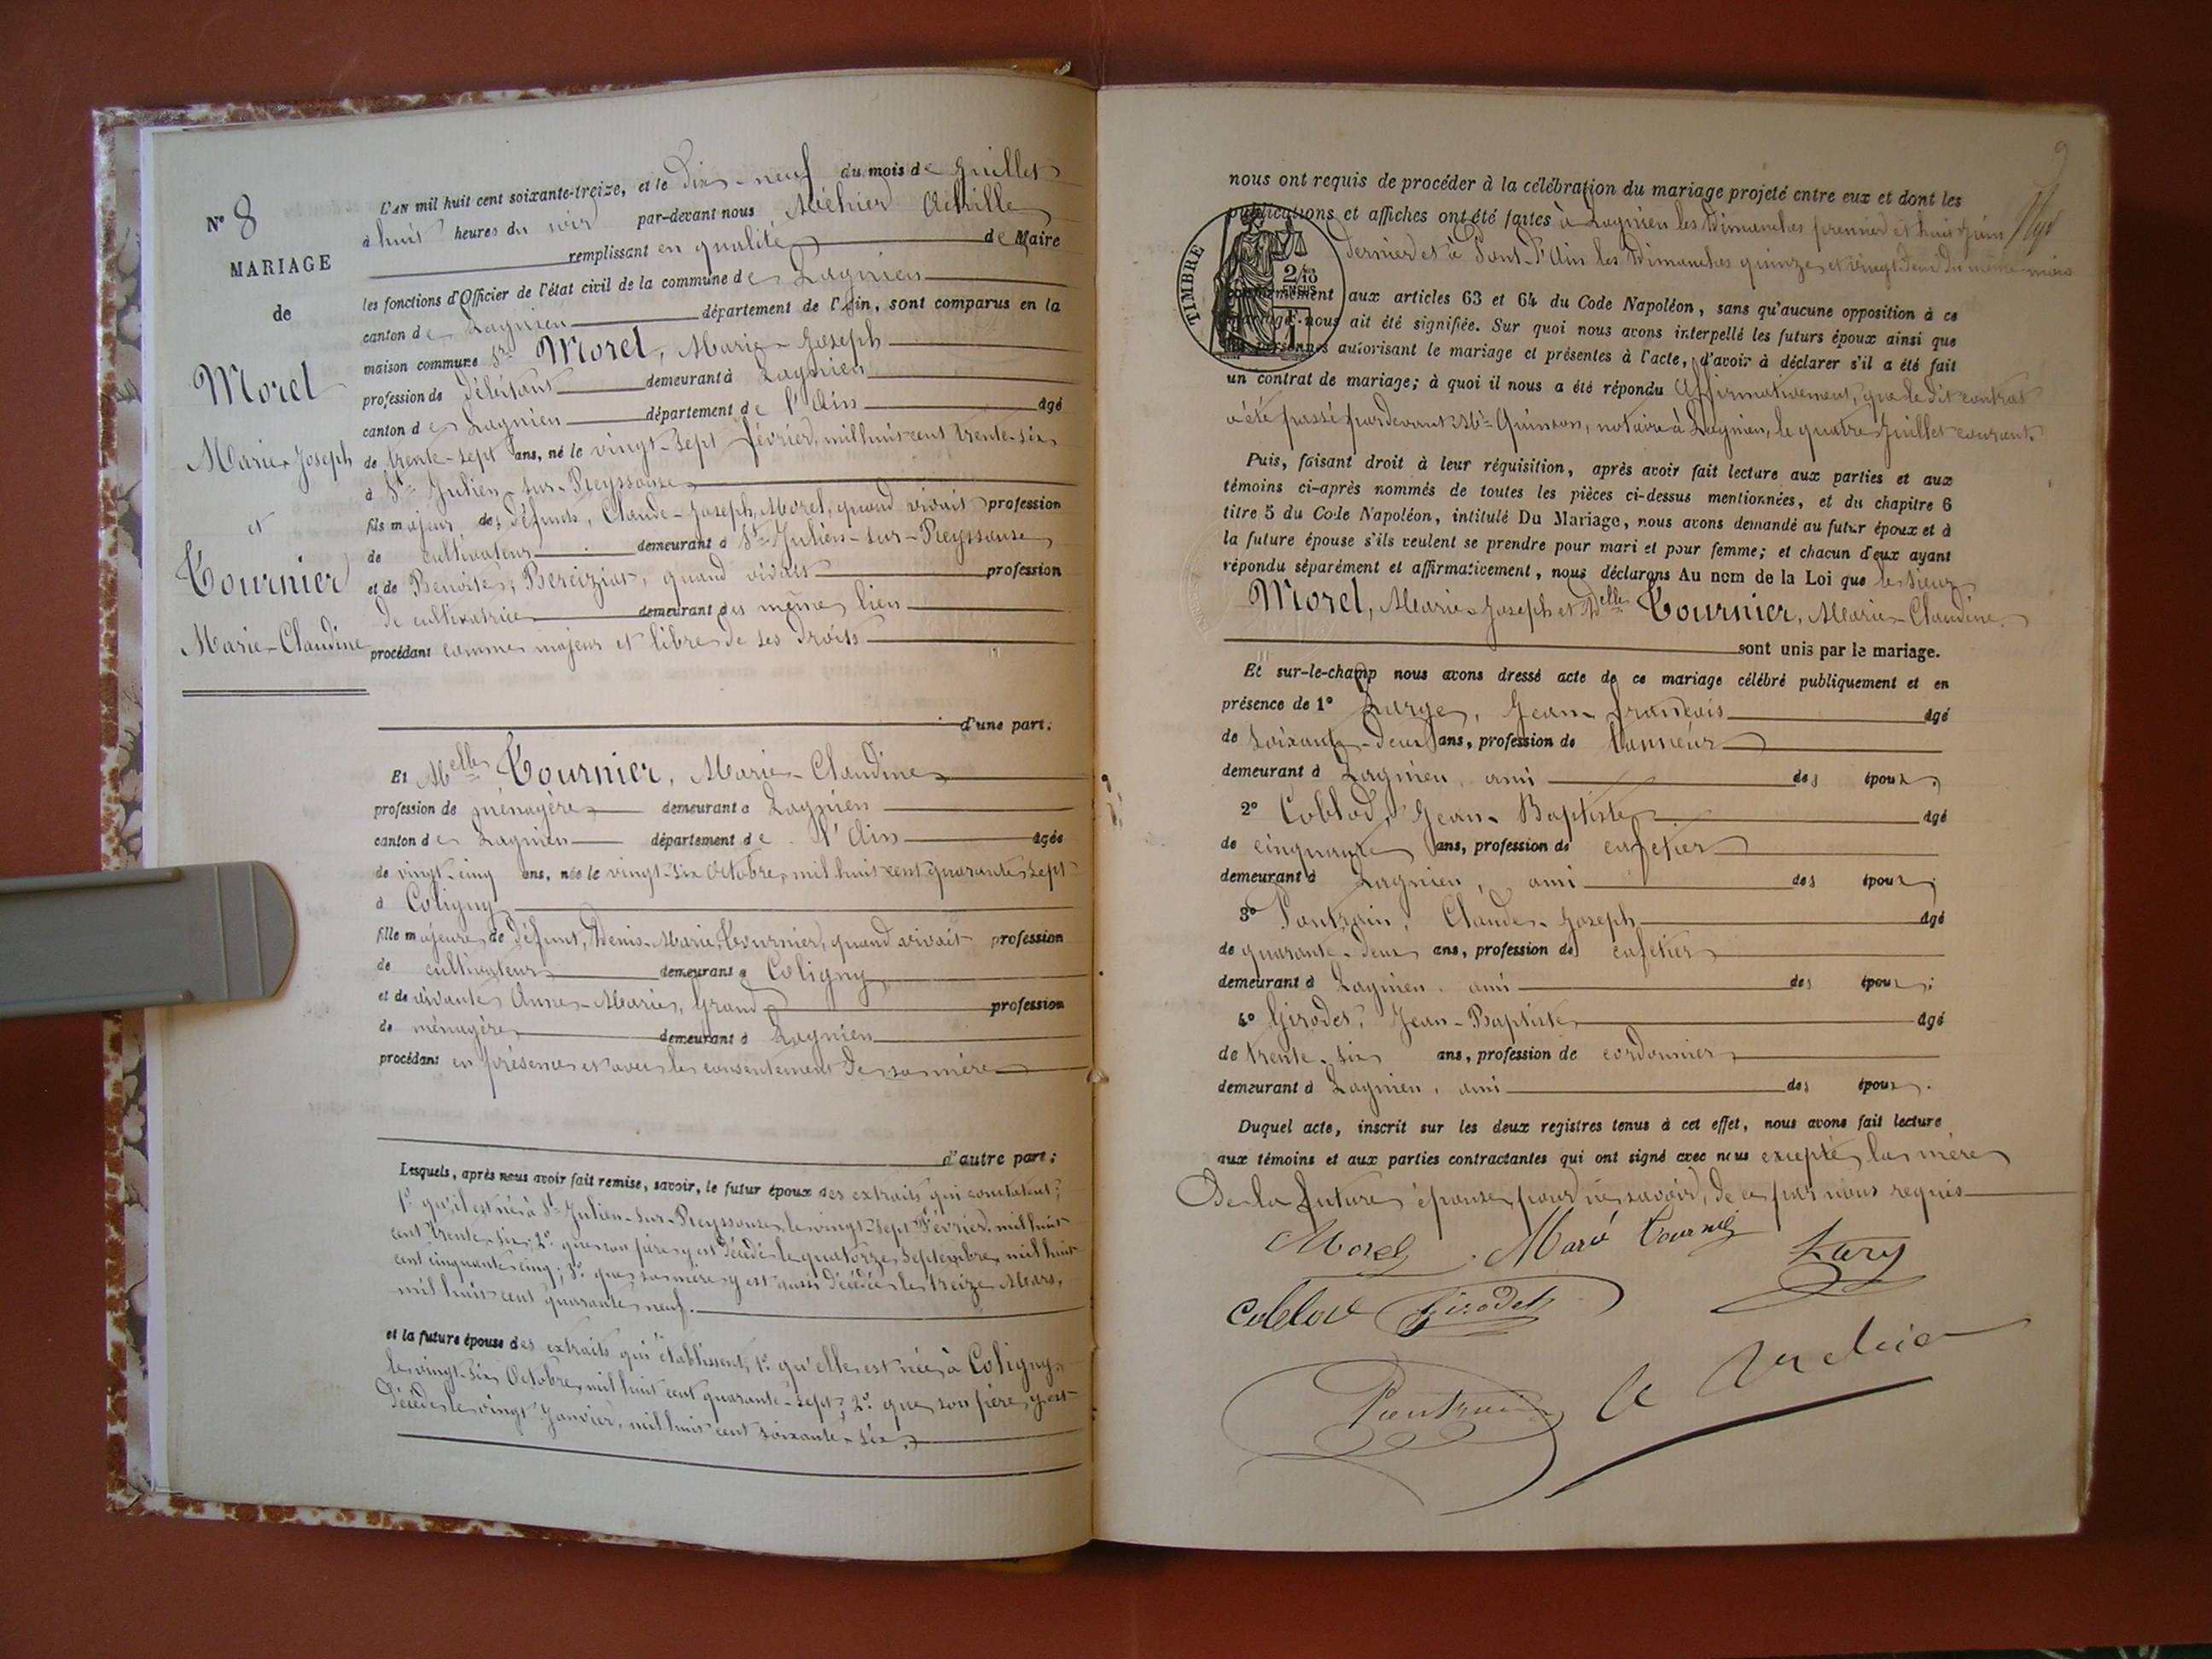 N° 8
MARIAGE
de
Morel
Marie-Joseph
et
Tournier
Marie-Claudine
L'AN mil huit cent soixante-treize, et le Dix-neuf du mois de Juillet
à huit heures du soir par-devant nous Achille
remplissant en qualité de Maire
les fonctions d'Officier de l'état civil de la commune de Lagnieu
canton de Lagnieu département de l'Ain, sont comparus en la
maison commune Sr Morel, Marie-Joseph
profession de débitant demeurant à Lagnieu
canton de Lagnieu département de l'Ain âgé
de trente-sept ans, né le vingt-sept février, mil huit cent trente-six
à St Julien-sur-Reyssouze
fils majeur des défunts, Claude-Joseph, Morel, quand vivait profession
de cultivateur demeurant à St Julien-sur-Reyssouze
et de Benoite, Bereiziat, quand vivait profession
de cultivatrice demeurant au même lieu
procédant comme majeur et libre de ses droits
d'une part.
Et Melle Tournier, Marie-Claudine
profession de ménagère demeurant à Lagnieu
canton de Lagnieu département de l'Ain âgée
de vingt-cinq ans, née le vingt-six Octobre, mil huit cent quarante sept
à Coligny
fille majeure de défunt, Denis-Marie, Tournier, quand vivait profession
de cultivateur demeurant à Coligny
et de vivante Anne-Marie, Grand profession
de ménagère demeurant à Lagnieu
procédant en présence et avec le consentement de sa mère
d'autre part;
Lesquels, après nous avoir fait remise, savoir, le futur époux des extraits qui constatent;
1° qu'il est né à St Julien-sur-Reyssouze, le vingt-sept Février, mil huit
cent trente-six; 2° que son père y est décédé le quatorze Septembre, mil huit
cent cinquante cinq; 3° que sa mère y est aussi décédée le treize Mars,
mil huit cent quarante neuf.
et la future épouse des extraits qui établissent, 1° qu'elle est née à Coligny,
le vingt-six Octobre, mil huit cent quarante-sept; 2° que son père y est
décédé le vingt Janvier, mil huit cent soixante-six.
9
nous ont requis de procéder à la célébration du mariage projeté entre eux et dont les
publications et affiches ont été faites à Lagnieu les Dimanches premier et huit Juin
dernier et à Pont-d'Ain les Dimanches quinze et vingt deux du même mois
TIMBRE
2/10
EN SUS
conformément aux articles 63 et 64 du Code Napoléon, sans qu'aucune opposition à ce
mariage nous ait été signifiée. Sur quoi nous avons interpellé les futurs époux ainsi que
les personnes autorisant le mariage et présentes à l'acte, d'avoir à déclarer s'il a été fait
un contrat de mariage; à quoi il nous a été répondu Affirmativement, que le dit contrat
a été passé par devant Me Quinson, notaire à Lagnieu, le quatre Juillet courant.
Puis, faisant droit à leur réquisition, après avoir fait lecture aux parties et aux
témoins ci-après nommés de toutes les pièces ci-dessus mentionnées, et du chapitre 6
titre 5 du Code Napoléon, intitulé Du Mariage, nous avons demandé au futur époux et à
la future épouse s'ils veulent se prendre pour mari et pour femme; et chacun d'eux ayant
répondu séparément et affirmativement, nous déclarons Au nom de la Loi que le sieur
Morel, Marie-Joseph et Delle Tournier, Marie-Claudine
sont unis par le mariage.
Et sur-le-champ nous avons dressé acte de ce mariage célébré publiquement et en
présence de 1° Jean-François âgé
de soixante-deux ans, profession de tanneur
demeurant à Lagnieu, ami des époux;
2° Coblod, Jean-Baptiste âgé
de cinquante ans, profession de cafetier
demeurant à Lagnieu, ami des époux;
3° Claude-Joseph âgé
de quarante-deux ans, profession de cafetier
demeurant à Lagnieu, ami des époux;
4° Girodet, Jean-Baptiste âgé
de trente-six ans, profession de cordonnier
demeurant à Lagnieu, ami des époux.
Duquel acte, inscrit sur les deux registres tenus à cet effet, nous avons fait lecture
aux témoins et aux parties contractantes qui ont signé avec nous excepté la mère
De la future épouse, pour ne savoir, de ce par nous requis
Morel Marie Tournier
Coblod Girodet